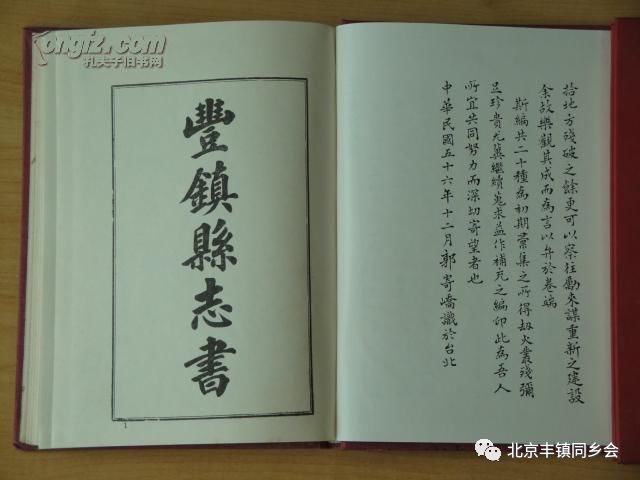 拾地方殘破之餘更可以察往勵來謀重新之建設
余故樂觀其成而為言以弁於卷端
斯編共二十種為初期彙集之所得劫火叢殘彌
足珍貴尤冀繼續蒐求益作補充之編印此為吾人
所宜共同努力而深切寄望者也
中華民國五十六年十二月郭寄嶠識於台北
豐鎮縣志書
1
kongfz.com
孔夫子旧书网
北京丰镇同乡会